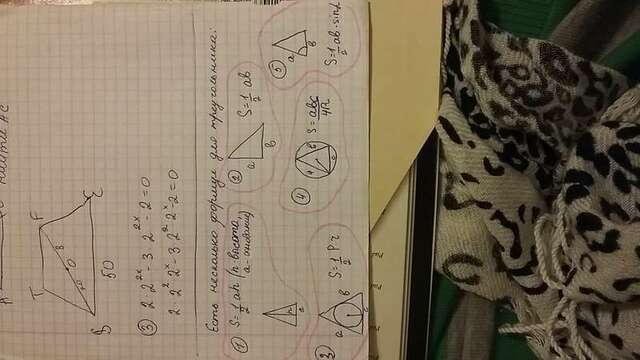 найти AC
T
F
8
O
10
B
C
50
③ 2·2^2x - 3·2^2x - 2 = 0
2·2^2·2^x - 3·2^2·2^x = 0
Есть несколько формул для треугольника:
① S = 1/2 ah (h-высота,
a-основание)
h
a
② S = 1/2 ab
a
b
3 S = 1/2 P r
a
b
c
④ S = abc/4R
a
b
c
⑤
a
b
S = 1/2 ab·sin α